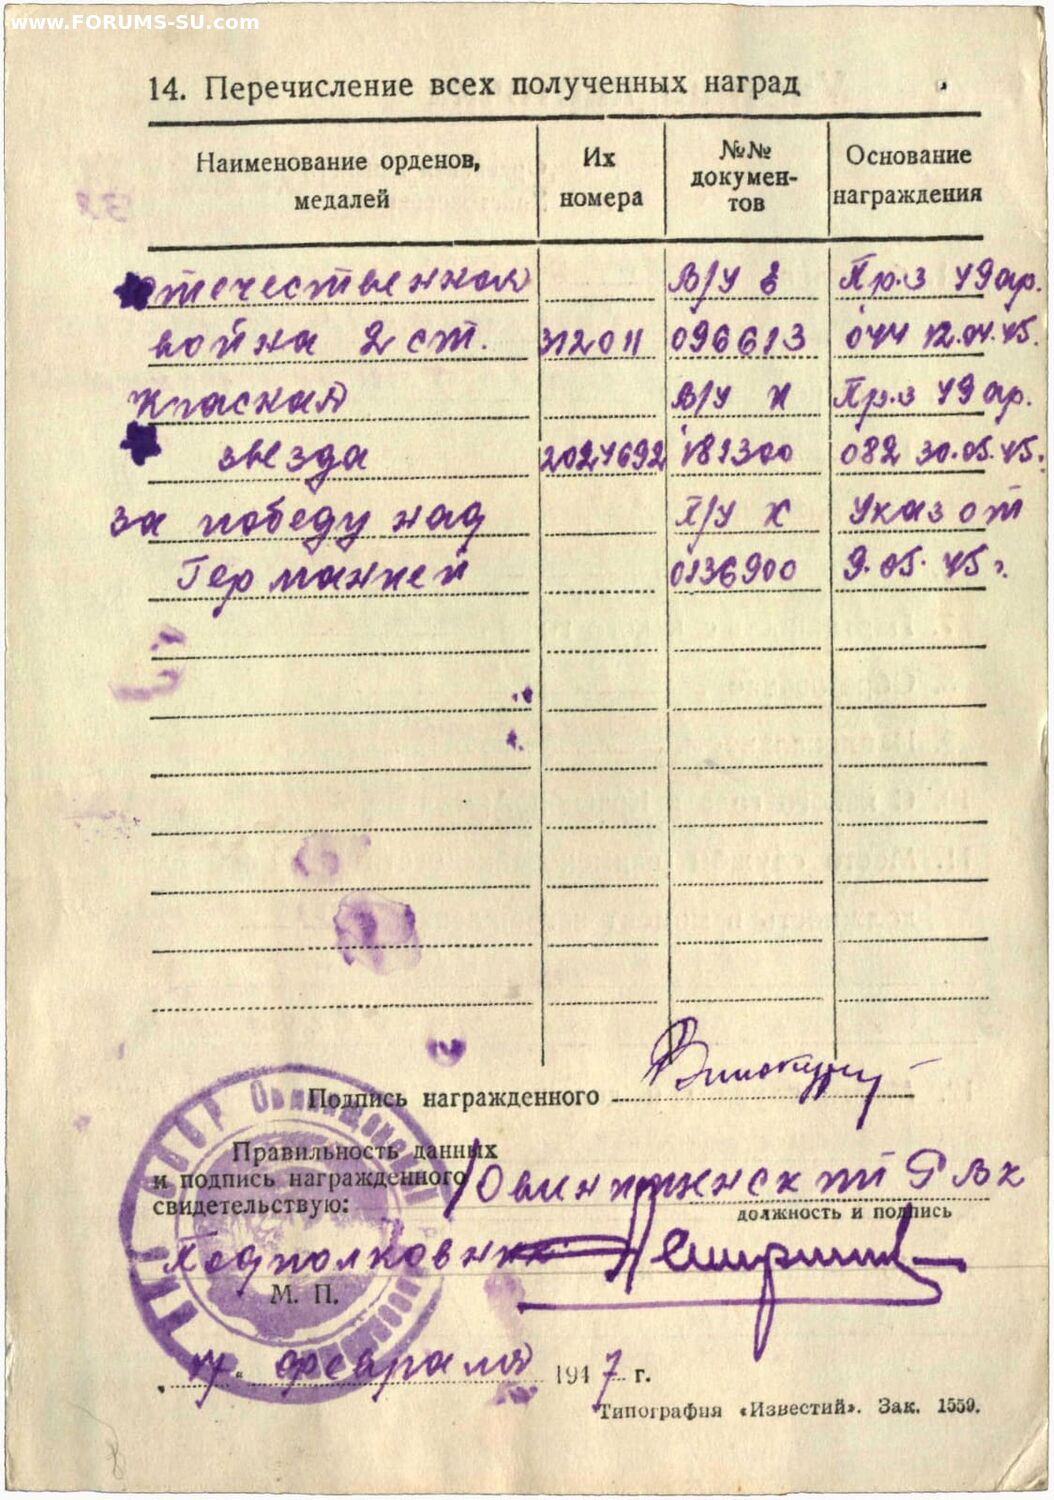 www.FORUMS-SU.com
14. Перечисление всех полученных наград
Наименование орденов, медалей
Их номера
№№ докумен-тов
Основание награждения
Отечественная В/У Пр.3 УДар.
война 2 ст. 312011 096613 044 12.04.45.
Красная В/У Пр.3 УДар.
звезда 2024692 181300 082 30.05.45.
За победу над Указ от
Германией 0136900 9.05.45 г.
Подпись награжденного
Правильность данных
и подпись награжденного
свидетельствую:
РВК
должность и подпись
Подполковник
М. П.
17 февраля 1947 г.
Типография «Известий». Зак. 1559.